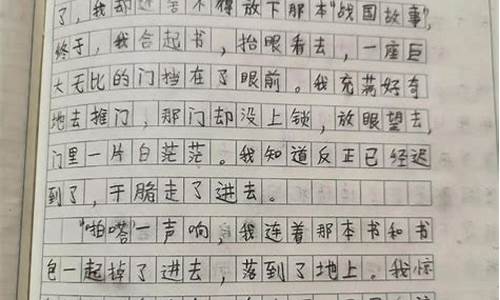 了，我却还舍不得放下那本“战国故事”，
终于，我合起书，抬眼看去，一座巨
大无比的门挡在了眼前。我充满好奇
地去推门，那门却没上锁，放眼望去，
门里一片白茫茫。我知道反正已经迟
到了，干脆走了进去。
“啪嗒”一声响，我连着那本书和书
包一起掉了进去，落到了地上。我惊